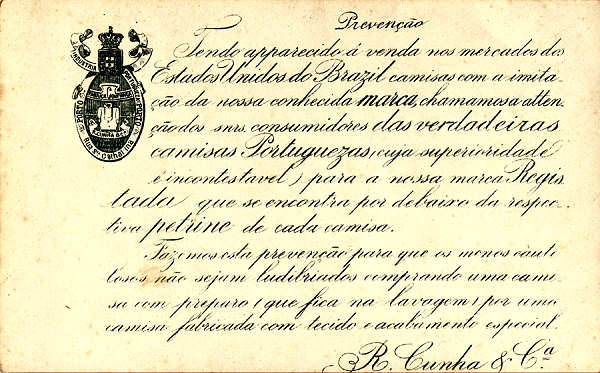 Prevenção
Tendo apparecido á venda nos mercados dos
Estados Unidos do Brazil camisas com a imita-
ção da nossa conhecida marca, chamamos a atten-
ção dos snrs. consumidores das verdadeiras
camisas Portuguezas, (cuja superioridade
é incontestavel) para a nossa marca Regis-
tada que se encontra por debaixo da respec-
tiva petrine de cada camisa.
Fazemos esta prevenção para que os menos cauti-
losos não sejam ludibriados comprando uma cami-
sa com preparo (que fica na lavagem) por uma
camisa fabricada com tecido e acabamento especial.
R. Cunha & Cª
INDUSTRIA
PORTO